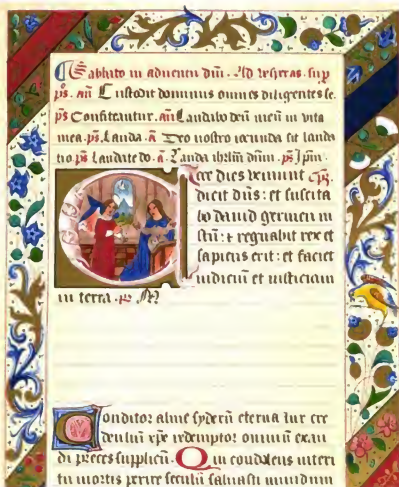 Sabbato in adventu dm̄. Ad vesperas. sup̄
ps̄. an̄ Custodit dominus omnes diligentes se.
ps̄ Confiteantur. an̄ Laudabo deū meū in vita
mea. ps̄. Lauda. ā Deo nostro iocunda sit lauda
tio. ps̄ Laudate do. ā. Lauda ihrlm̄ dūm. ps̄ Ip̄m.
Ecce dies veniunt cp̄.
dicit dn̄s: et suscita
bo david germen iu
stū: ⁊ regnabit rex et
sapiens erit: et faciet
iudiciū et iusticiam
in terra. ℞
Conditor alme syderū eterna lux cre
dentiū xp̄e redemptor omniū exau
di preces supplicū. Qui condolens interi
tu mortis perire seculū salvasti mundum